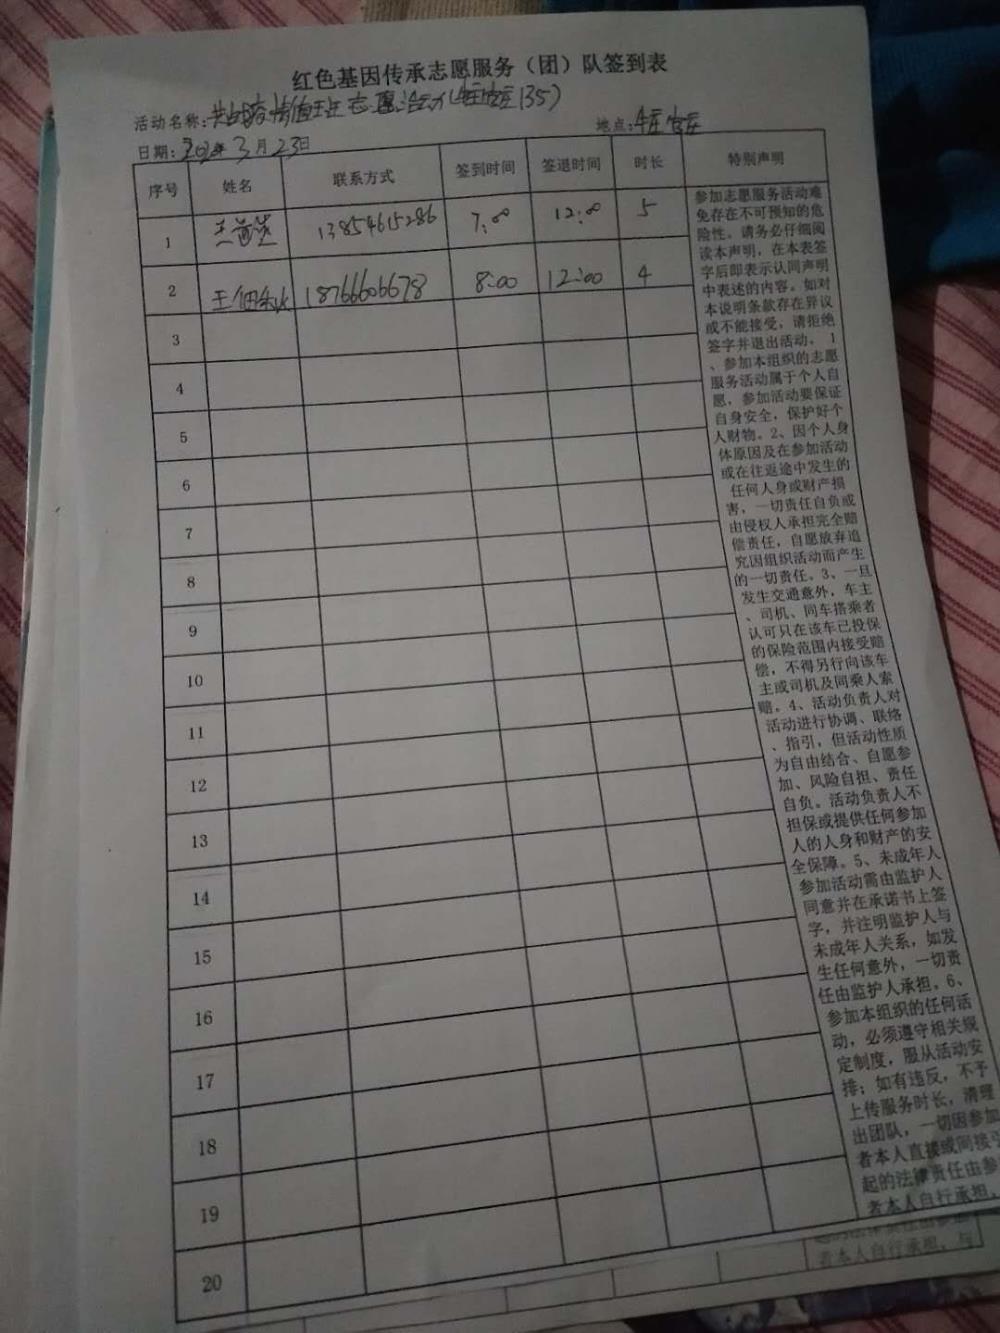 红色基因传承志愿服务（团）队签到表
活动名称：值班志愿活动(135)
地点：
日期：年3月23日
序号 姓名 联系方式 签到时间 签退时间 时长 特别声明
1 13854615286 7:00 12:00 5
2 18766606678 8:00 12:00 4
3
4
5
6
7
8
9
10
11
12
13
14
15
16
17
18
19
20
参加志愿服务活动难
免存在不可预知的危
险性。请务必仔细阅
读本声明，在本表签
字后即表示认同声明
中表述的内容。如对
本说明条款存在异议
或不能接受，请拒绝
签字并退出活动。1
、参加本组织的志愿
服务活动属于个人自
愿，参加活动要保证
自身安全，保护好个
人财物。2、因个人身
体原因及在参加活动
或在往返途中发生的
任何人身或财产损
害，一切责任自负或
由侵权人承担完全赔
偿责任，自愿放弃追
究因组织活动而产生
的一切责任。3、一旦
发生交通意外，车主
、司机、同车搭乘者
认可只在该车已投保
的保险范围内接受赔
偿，不得另行向该车
主或司机及同乘人索
赔。4、活动负责人对
活动进行协调、联络
、指引，但活动性质
为自由结合、自愿参
加、风险自担、责任
自负。活动负责人不
担保或提供任何参加
人的人身和财产的安
全保障。5、未成年人
参加活动需由监护人
同意并在承诺书上签
字，并注明监护人与
未成年人关系，如发
生任何意外，一切责
任由监护人承担。6、
参加本组织的任何活
动，必须遵守相关规
定制度，服从活动安
排；如有违反，不予
上传服务时长，清理
出团队，一切因参加
者本人直接或间接引
起的法律责任由参
者本人自行承担，
者本人自行承担，与